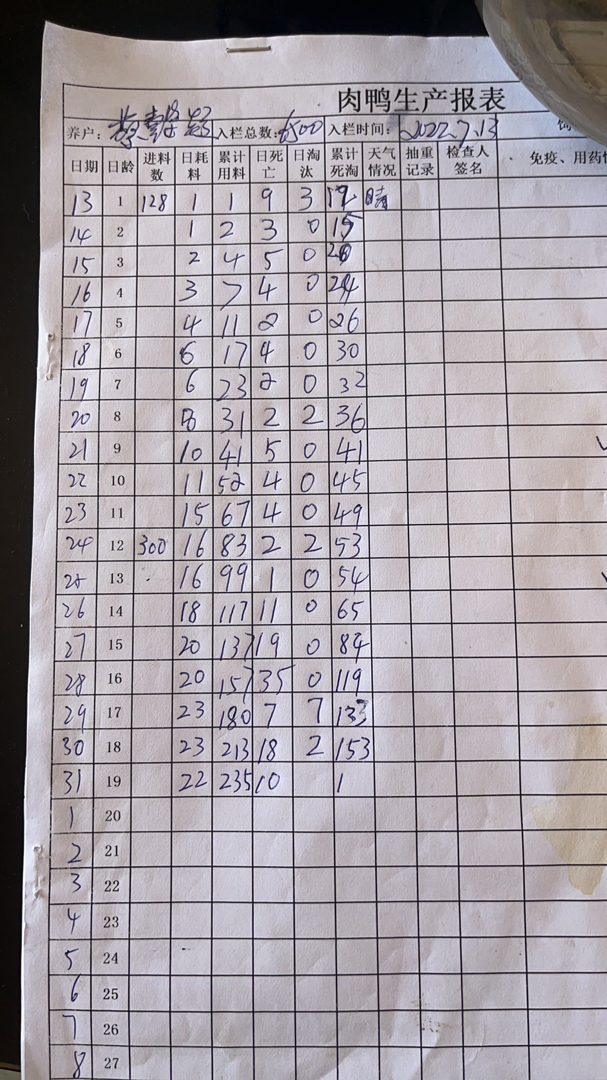 肉鸭生产报表
养户: 入栏总数: 6500 入栏时间: 2022.7.13
日期 日龄 进料数 日耗料 累计用料 日死亡 日淘汰 累计死淘 天气情况 抽重记录 检查人签名 免疫、用药情
13 1 128 1 1 9 3 12 晴
14 2 1 2 3 0 15
15 3 2 4 5 0 20
16 4 3 7 4 0 24
17 5 4 11 2 0 26
18 6 6 17 4 0 30
19 7 6 23 2 0 32
20 8 8 31 2 2 36
21 9 10 41 5 0 41
22 10 11 52 4 0 45
23 11 15 67 4 0 49
24 12 300 16 83 2 2 53
25 13 16 99 1 0 54
26 14 18 117 11 0 65
27 15 20 137 19 0 84
28 16 20 157 35 0 119
29 17 23 180 7 7 133
30 18 23 213 18 2 153
31 19 22 235 10 1
1 20
2 21
3 22
4 23
5 24
6 25
7 26
8 27